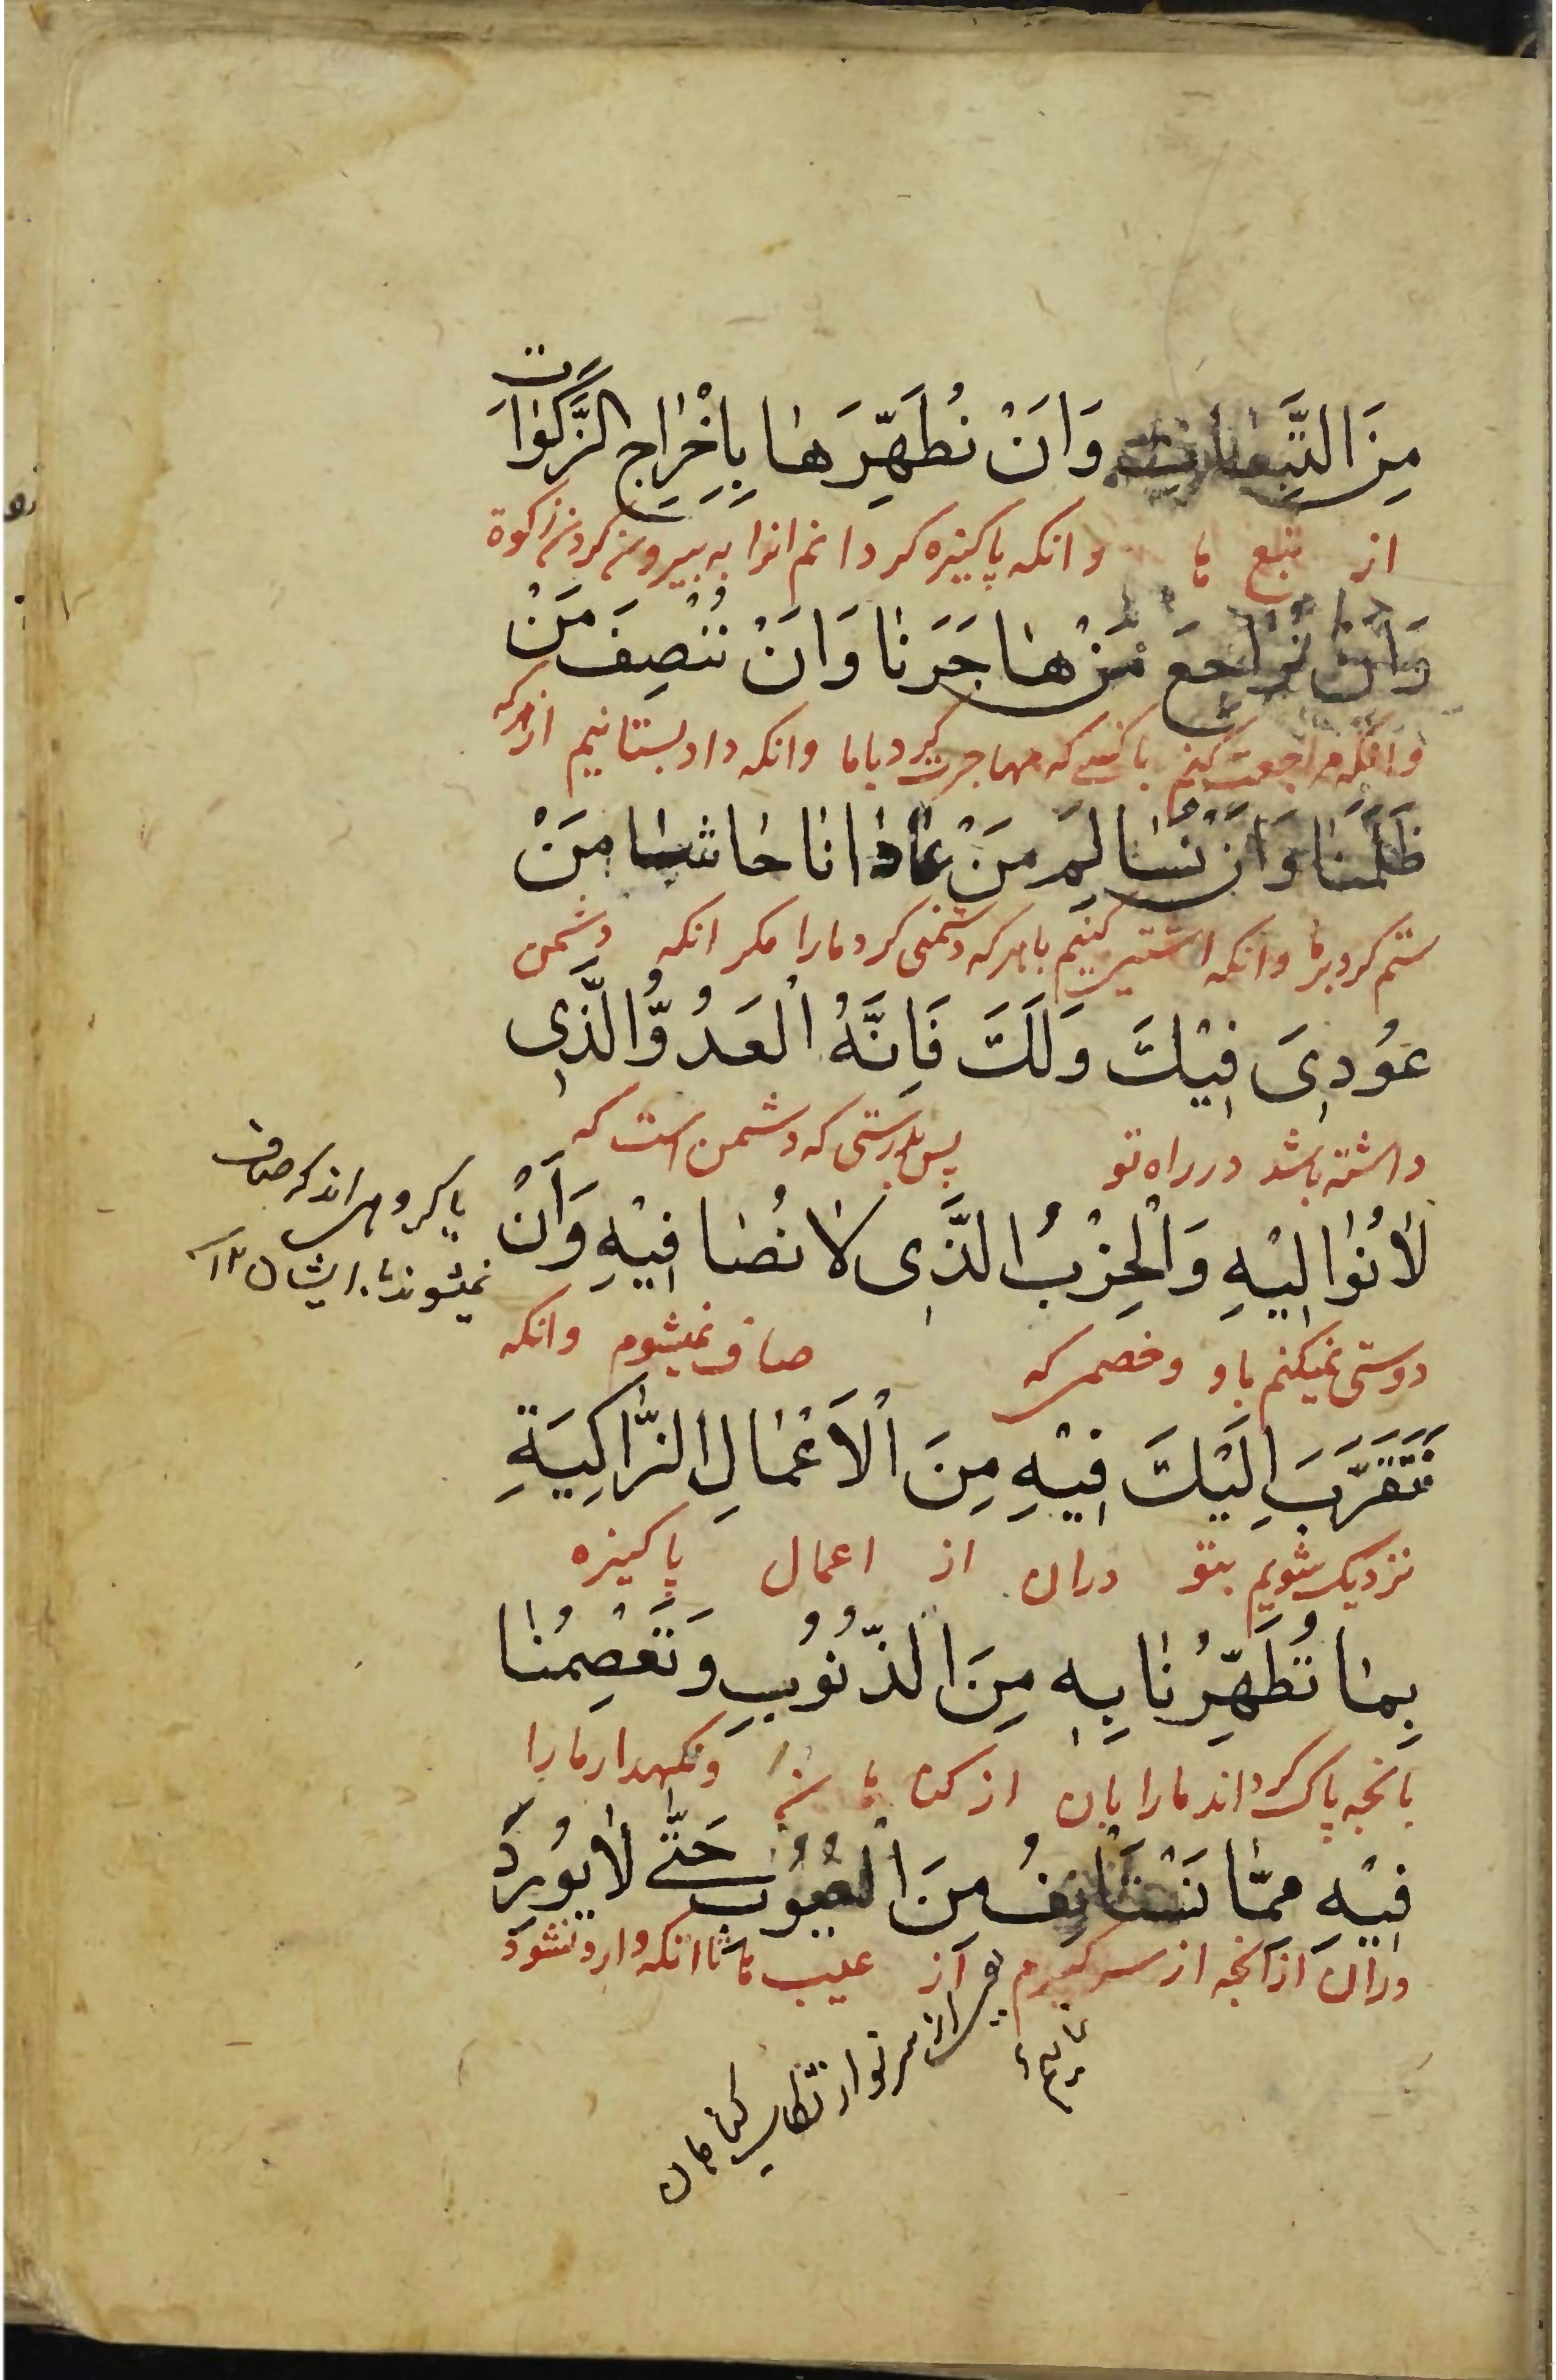 مِنَ التَّبِعَاتِ وَاَنْ نُطَهِّرَهَا بِاِخْرَاجِ الزَّكَوَاتِ
از تبع ها وانکه پاکیزه کردانم انرا به بیرون کردن زکوة
وَاَنْ نُرَاجِعَ مَنْ هَاجَرَنَا وَاَنْ نُنْصِفَ مَنْ
وانکه مراجعت کنم باکسی که مهاجرت کرد باما وانکه داد بستانیم از هرکه
ظَلَمَنَا وَاَنْ نُسَالِمَ مَنْ عَادَانَا حَاشَا مَنْ
ستم کرد برما وانکه اشتی کنیم باهرکه دشمنی کرد مارا مکر انکه دشمن
عُودِىَ فِيْكَ وَلَكَ فَاِنَّهُ الْعَدُوُّ الَّذِى
داشته باشد در راه تو پس بدرستی که دشمن است که
لَانُوَالِيْهِ وَالْحِزْبُ الَّذِى لَانُصَافِيْهِ وَاَنْ
یا کروهی اند که صاف
نمیشوند با ایشان ١٢
دوستی نمیکنم باو وخصمی که صاف نمیشوم وانکه
نَتَقَرَّبَ اِلَيْكَ فِيْهِ مِنَ الْاَعْمَالِ الزَّاكِيَةِ
نزدیک شویم بتو دران از اعمال پاکیزه
بِمَا تُطَهِّرُنَا بِهِ مِنَ الذُّنُوْبِ وَتَعْصِمُنَا
بانچه پاک کرداند مارا بان از کناه ها ونکهدار مارا
فِيْهِ مِمَّا نَسْتَأْنِفُ مِنَ الْعُيُوْبِ حَتّٰى لَايُوْرِدَ
دران ازانچه از سر کیرم از عیب ها تا انکه وارد نشود
از سر نو ارتکاب کناهان